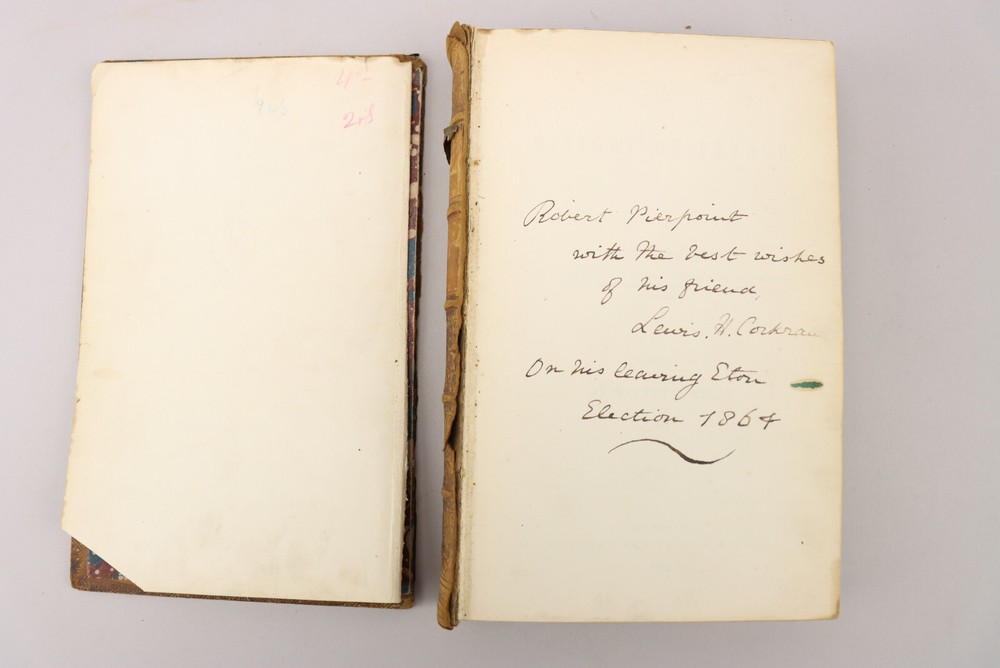 Robert Pierpoint
with the best wishes
of his friend,
Lewis. H. Cochran
On his leaving Eton
Election 1864